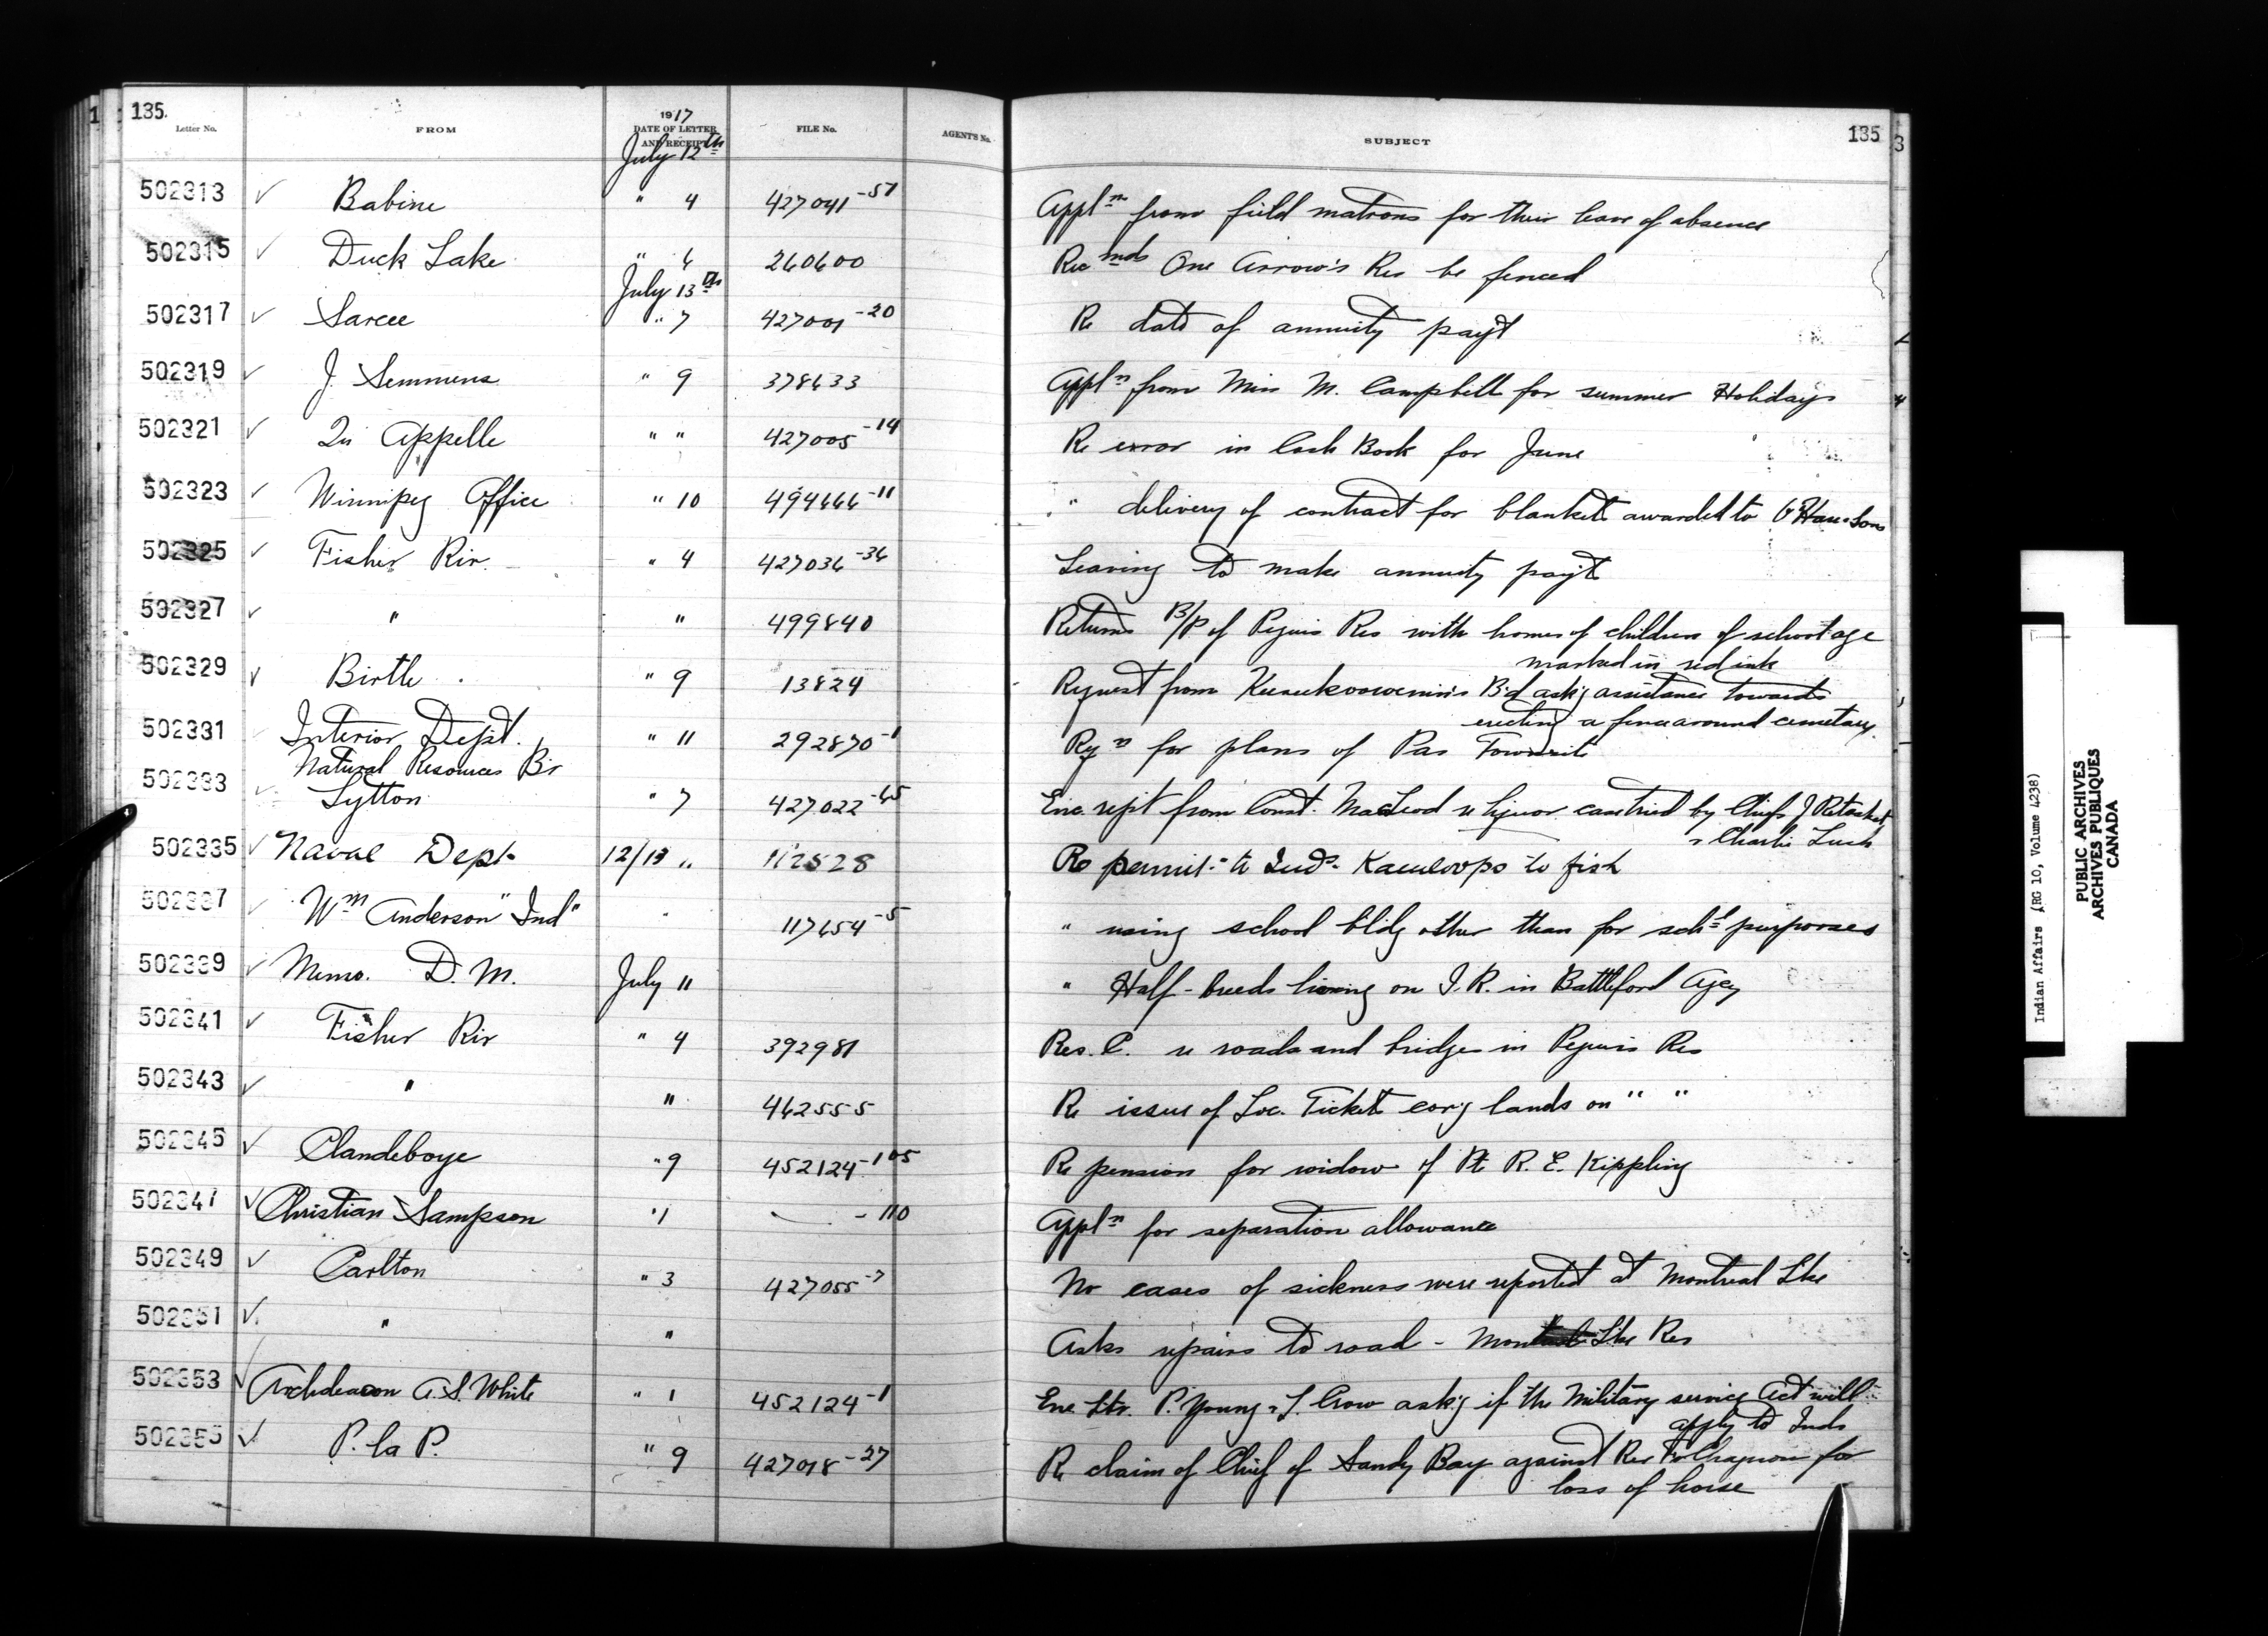 135. 1917 135
Letter No. FROM DATE OF LETTER AND RECEIPT FILE No. AGENT'S No. SUBJECT
July 12th
502313 ✓ Babine " 4 427041-57 Appln from field matrons for their leave of absence
502315 ✓ Duck Lake " 6 260600 Recmds One Arrow's Res be fenced
July 13th
502317 ✓ Sarcee " 7 427001-20 Re date of annuity payt
502319 ✓ J. Semmens " 9 378633 Appln from Miss M. Campbell for summer Holidays
502321 ✓ Qu Appelle " " 427005-14 Re error in Cash Book for June
502323 ✓ Winnipeg Office " 10 494666-11 " delivery of contract for blankets awarded to Sons
502325 ✓ Fisher Riv. " 4 427036-36 Leaving to make annuity payt
502327 ✓ " " 499840 Returns B/P of Peguis Res with homes of children of school age
marked in red ink
502329 ✓ Birtle " 9 13824 Request from Bd ask'g assistance towards
erecting a fence around cemetary.
502331 Interior Dept. " 11 292870-1 Rqn for plans of Pas Townsite
Natural Resources Br
502333 Lytton " 7 427022-65 Enc. rept from Const. MacLeod re liquor case tried by Chiefs J
& Charlie
502335 ✓ Naval Dept. 12/13 " 112528 Re permit to Inds. Kamloops to fish
502337 Wm Anderson "Ind" " 117654-5 " using school bldg other than for schl purposes
502339 ✓ Memo. D. M. July 11 " Half-breeds living on I. R. in Battleford Agcy
502341 ✓ Fisher Riv " 4 392981 Res. C. re roads and bridges in Peguis Res
502343 ✓ " " 462555 Re issue of Loc. Tickets covg lands on " "
502345 ✓ Clandeboye " 9 452124-105 Re pension for widow of Pt R. E. Kippling
502347 ✓ Christian Sampson " 1 -110 Appln for separation allowance
502349 ✓ Carlton " 3 427055-7 No cases of sickness were reported at Montreal Lke
502351 ✓ " " Asks repairs to road - Montreal Lke Res
502353 ✓ Archdeacon A. S. White " 1 452124-1 Enc Ltr. P. Young & J. Crow ask'g if the Military service Act will
apply to Inds
502355 ✓ P. la P. " 9 427018-27 Re claim of Chief of Sandy Bay against Rev Fr Chagnon for
loss of horse
Indian Affairs (RG 10, Volume 4238)
PUBLIC ARCHIVES
ARCHIVES PUBLIQUES
CANADA